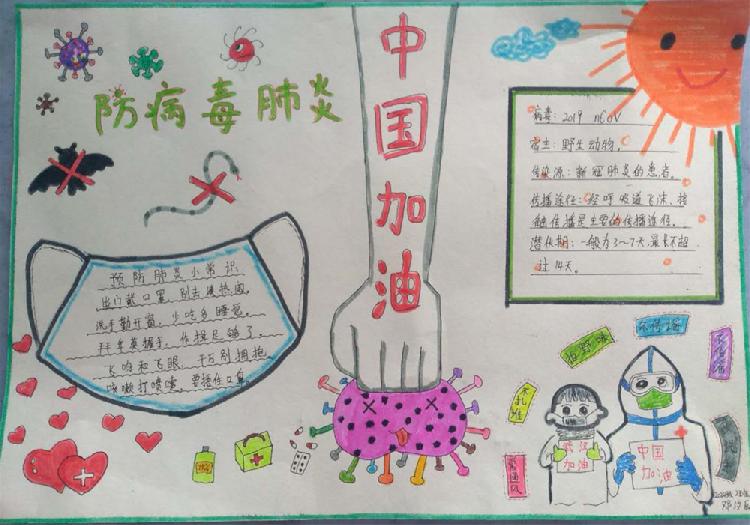 防病毒肺炎
中国加油
病毒：2019 nCoV
宿主：野生动物。
传染源：新冠肺炎的患者。
传播途径：经呼吸道飞沫，接
触传播是主要的传播途径。
潜伏期：一般为3~7天最长不超
过14天。
预防肺炎小常识
出门戴口罩，别去凑热闹
洗手勤开窗，少吃多睡觉
拜年莫握手，作揖足够了
飞吻和飞眼，千万别拥抱
咳嗽打喷嚏，要捂住口鼻
武汉
加油
中国
加油
不扎堆
常通风